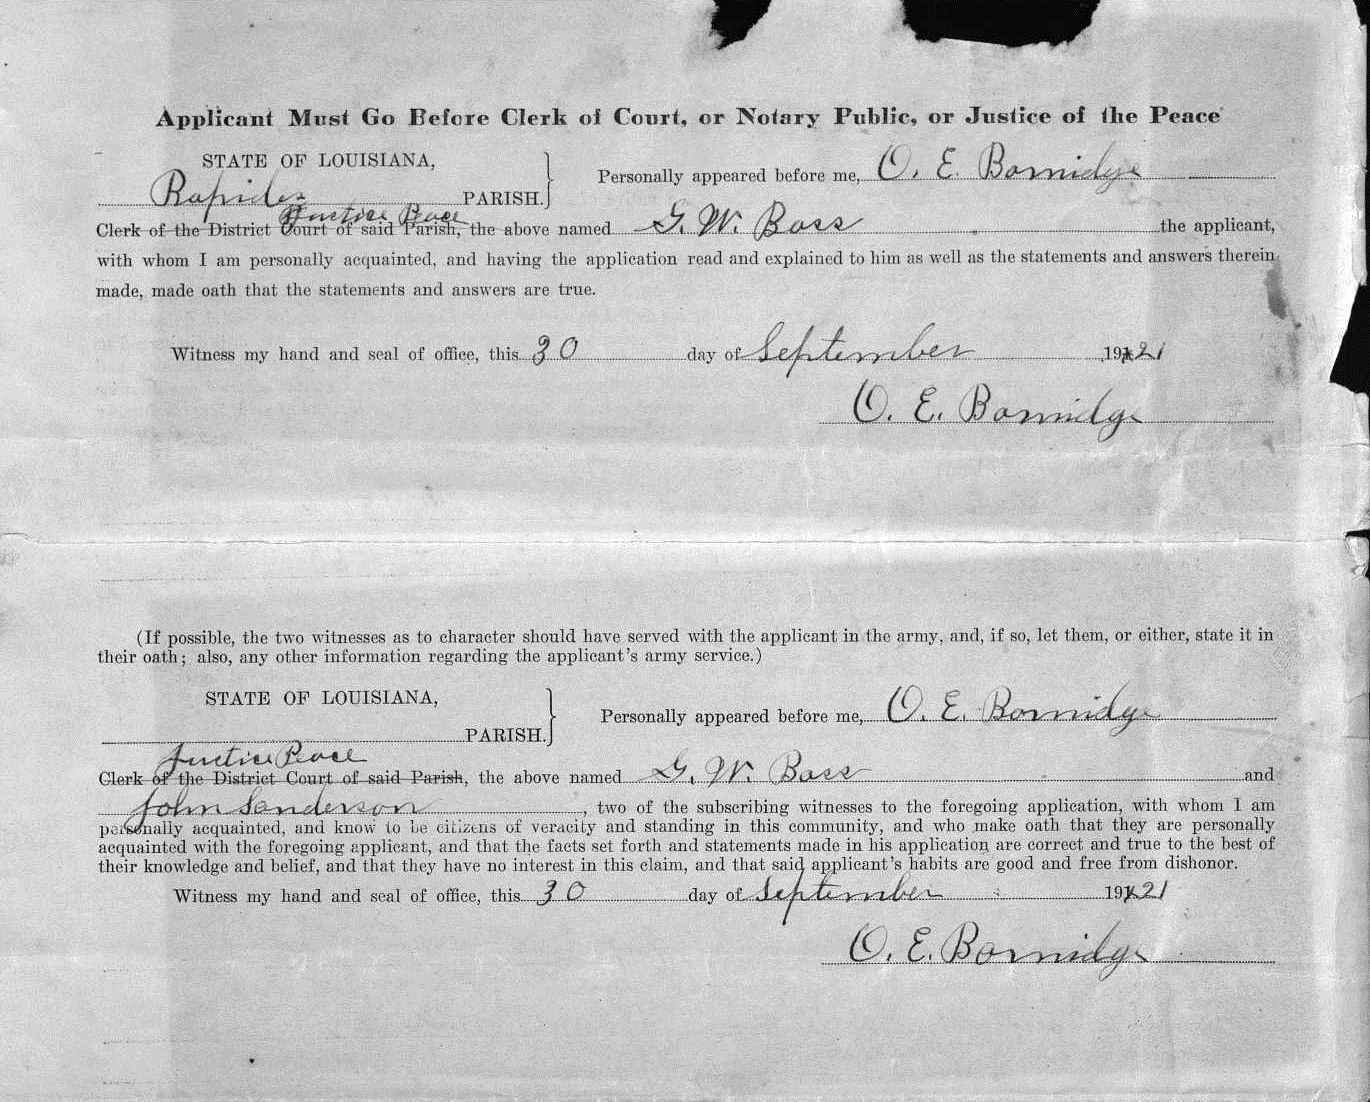 Applicant Must Go Before Clerk of Court, or Notary Public, or Justice of the Peace
STATE OF LOUISIANA,
Rapides PARISH.
Personally appeared before me, O. E. Bonnidge
Justice Peace
Clerk of the District Court of said Parish, the above named G. W. Bass the applicant,
with whom I am personally acquainted, and having the application read and explained to him as well as the statements and answers therein
made, made oath that the statements and answers are true.
Witness my hand and seal of office, this 30 day of September 1921
O. E. Bonnidge
(If possible, the two witnesses as to character should have served with the applicant in the army, and, if so, let them, or either, state it in
their oath; also, any other information regarding the applicant's army service.)
STATE OF LOUISIANA,
PARISH.
Personally appeared before me, O. E. Bonnidge
Justice Peace
Clerk of the District Court of said Parish, the above named G. W. Bass and
John Sanderson, two of the subscribing witnesses to the foregoing application, with whom I am
personally acquainted, and know to be citizens of veracity and standing in this community, and who make oath that they are personally
acquainted with the foregoing applicant, and that the facts set forth and statements made in his application are correct and true to the best of
their knowledge and belief, and that they have no interest in this claim, and that said applicant's habits are good and free from dishonor.
Witness my hand and seal of office, this 30 day of September 1921
O. E. Bonnidge